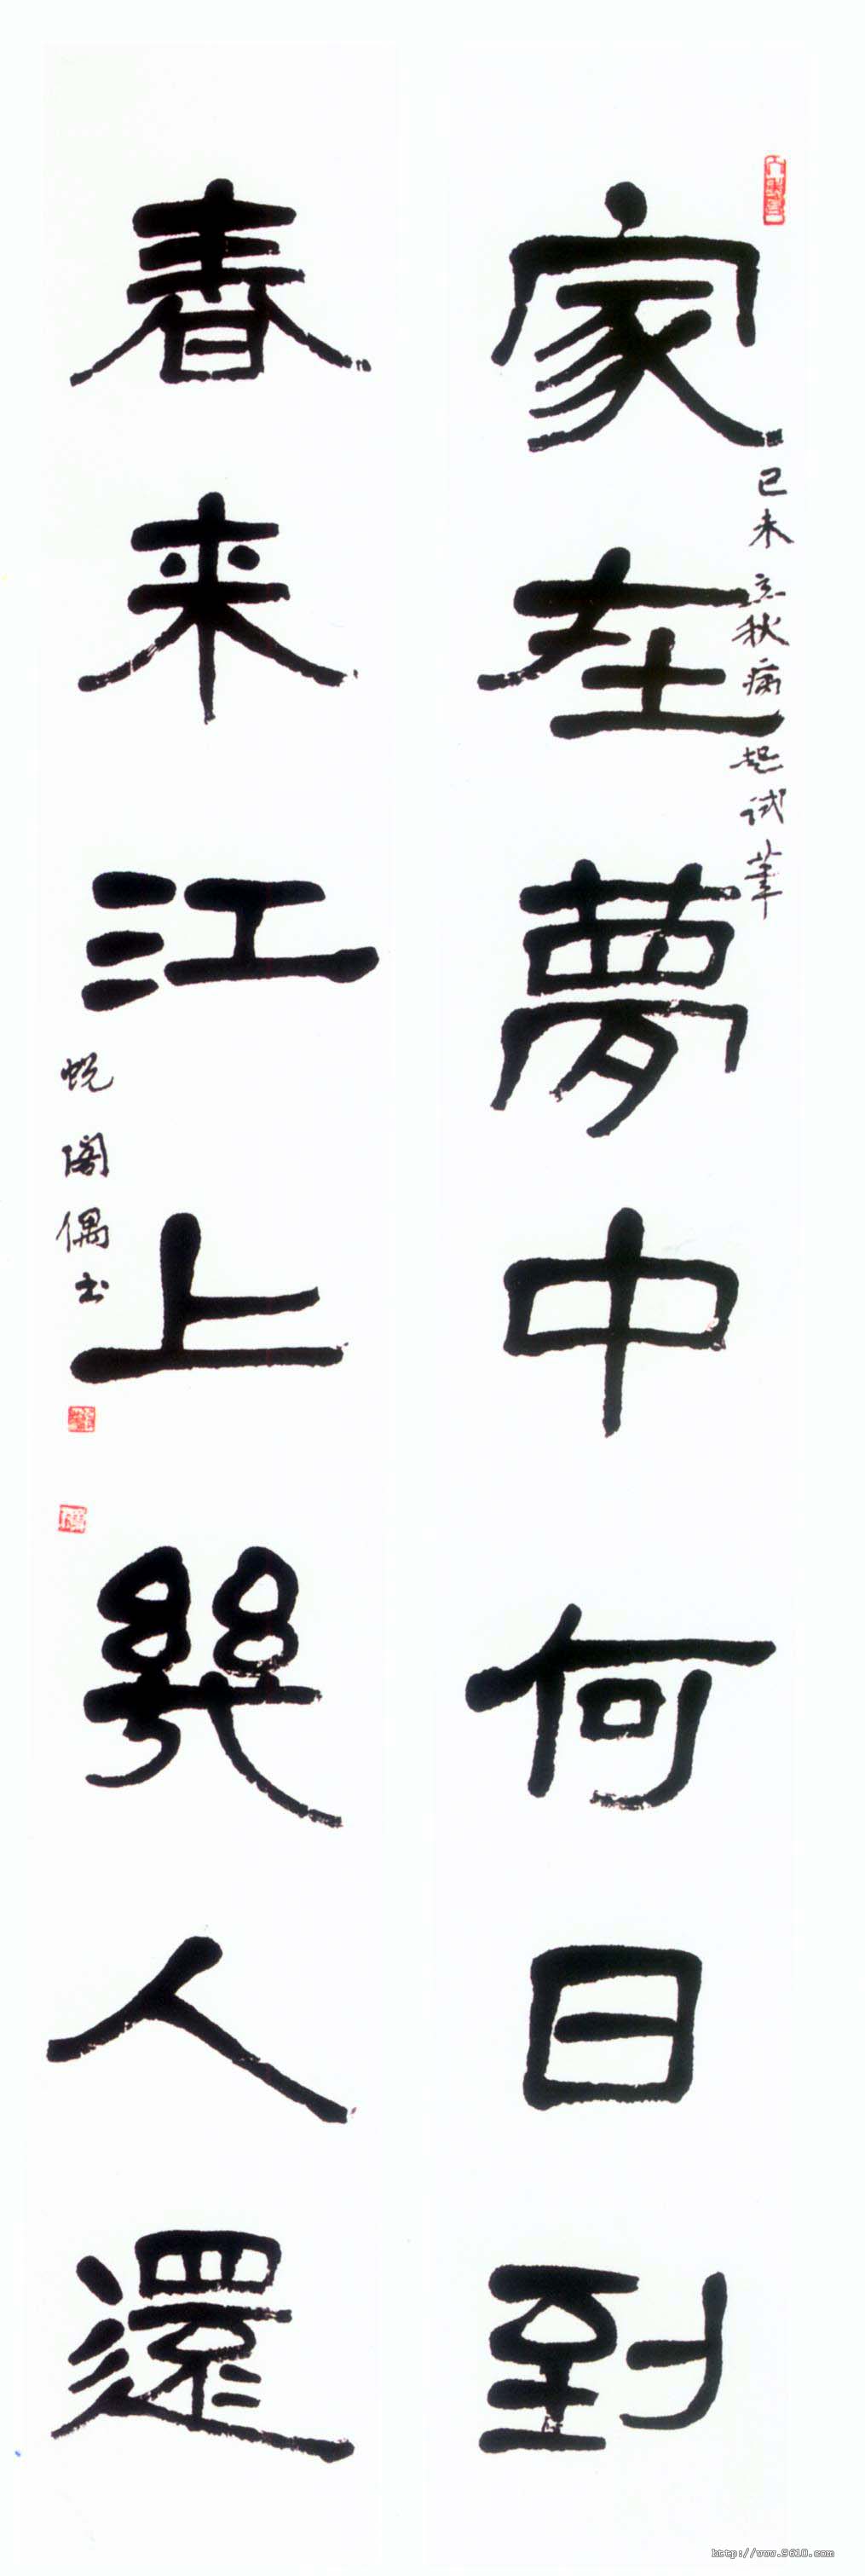 家在夢中何日到
己未立秋病起试筆
春来江上幾人還
蜕闇偶书
http://www.9610.com